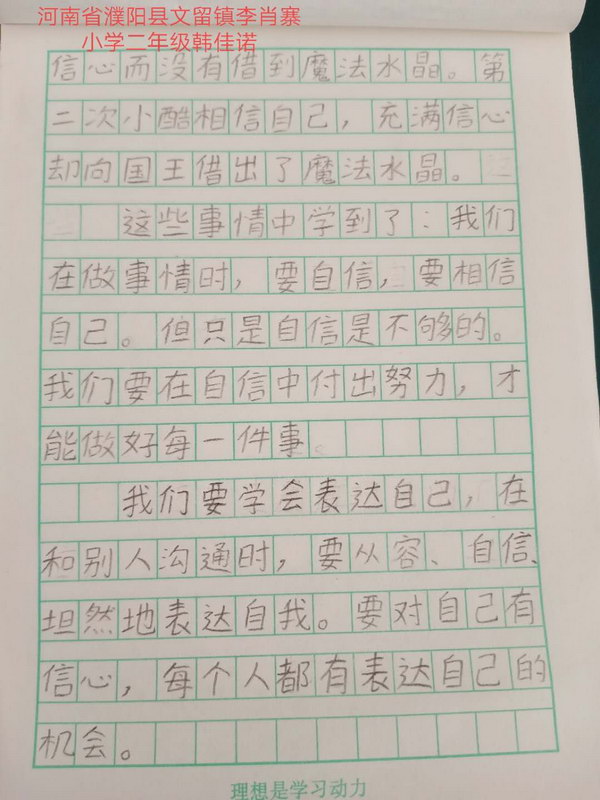 河南省濮阳县文留镇李肖寨
小学二年级韩佳诺
信心而没有借到魔法水晶。第
二次小酷相信自己，充满信心
却向国王借出了魔法水晶。
这些事情中学到了：我们
在做事情时，要自信，要相信
自己。但只是自信是不够的。
我们要在自信中付出努力，才
能做好每一件事。
我们要学会表达自己，在
和别人沟通时，要从容、自信、
坦然地表达自我。要对自己有
信心，每个人都有表达自己的
机会。
理想是学习动力